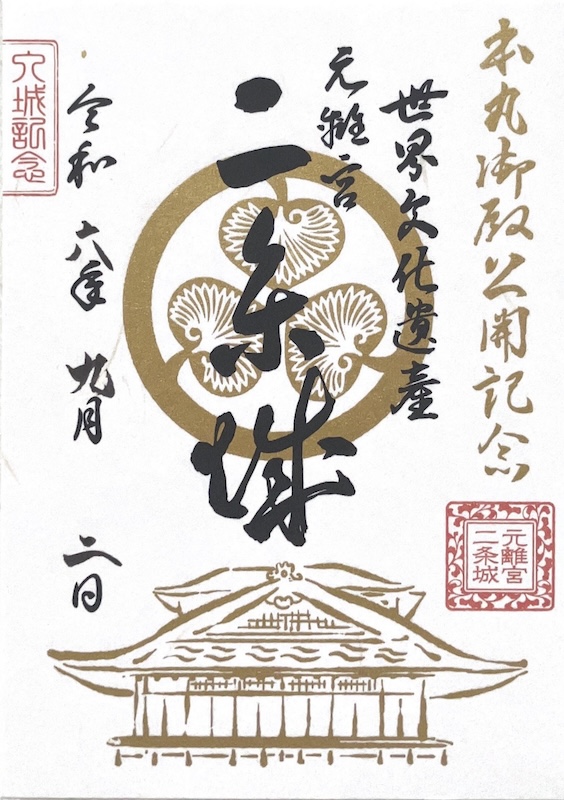 本丸御殿公開記念
世界文化遺産
元離宮
二条城
令和 六年 九月 二日
入城記念
元離宮
二条城